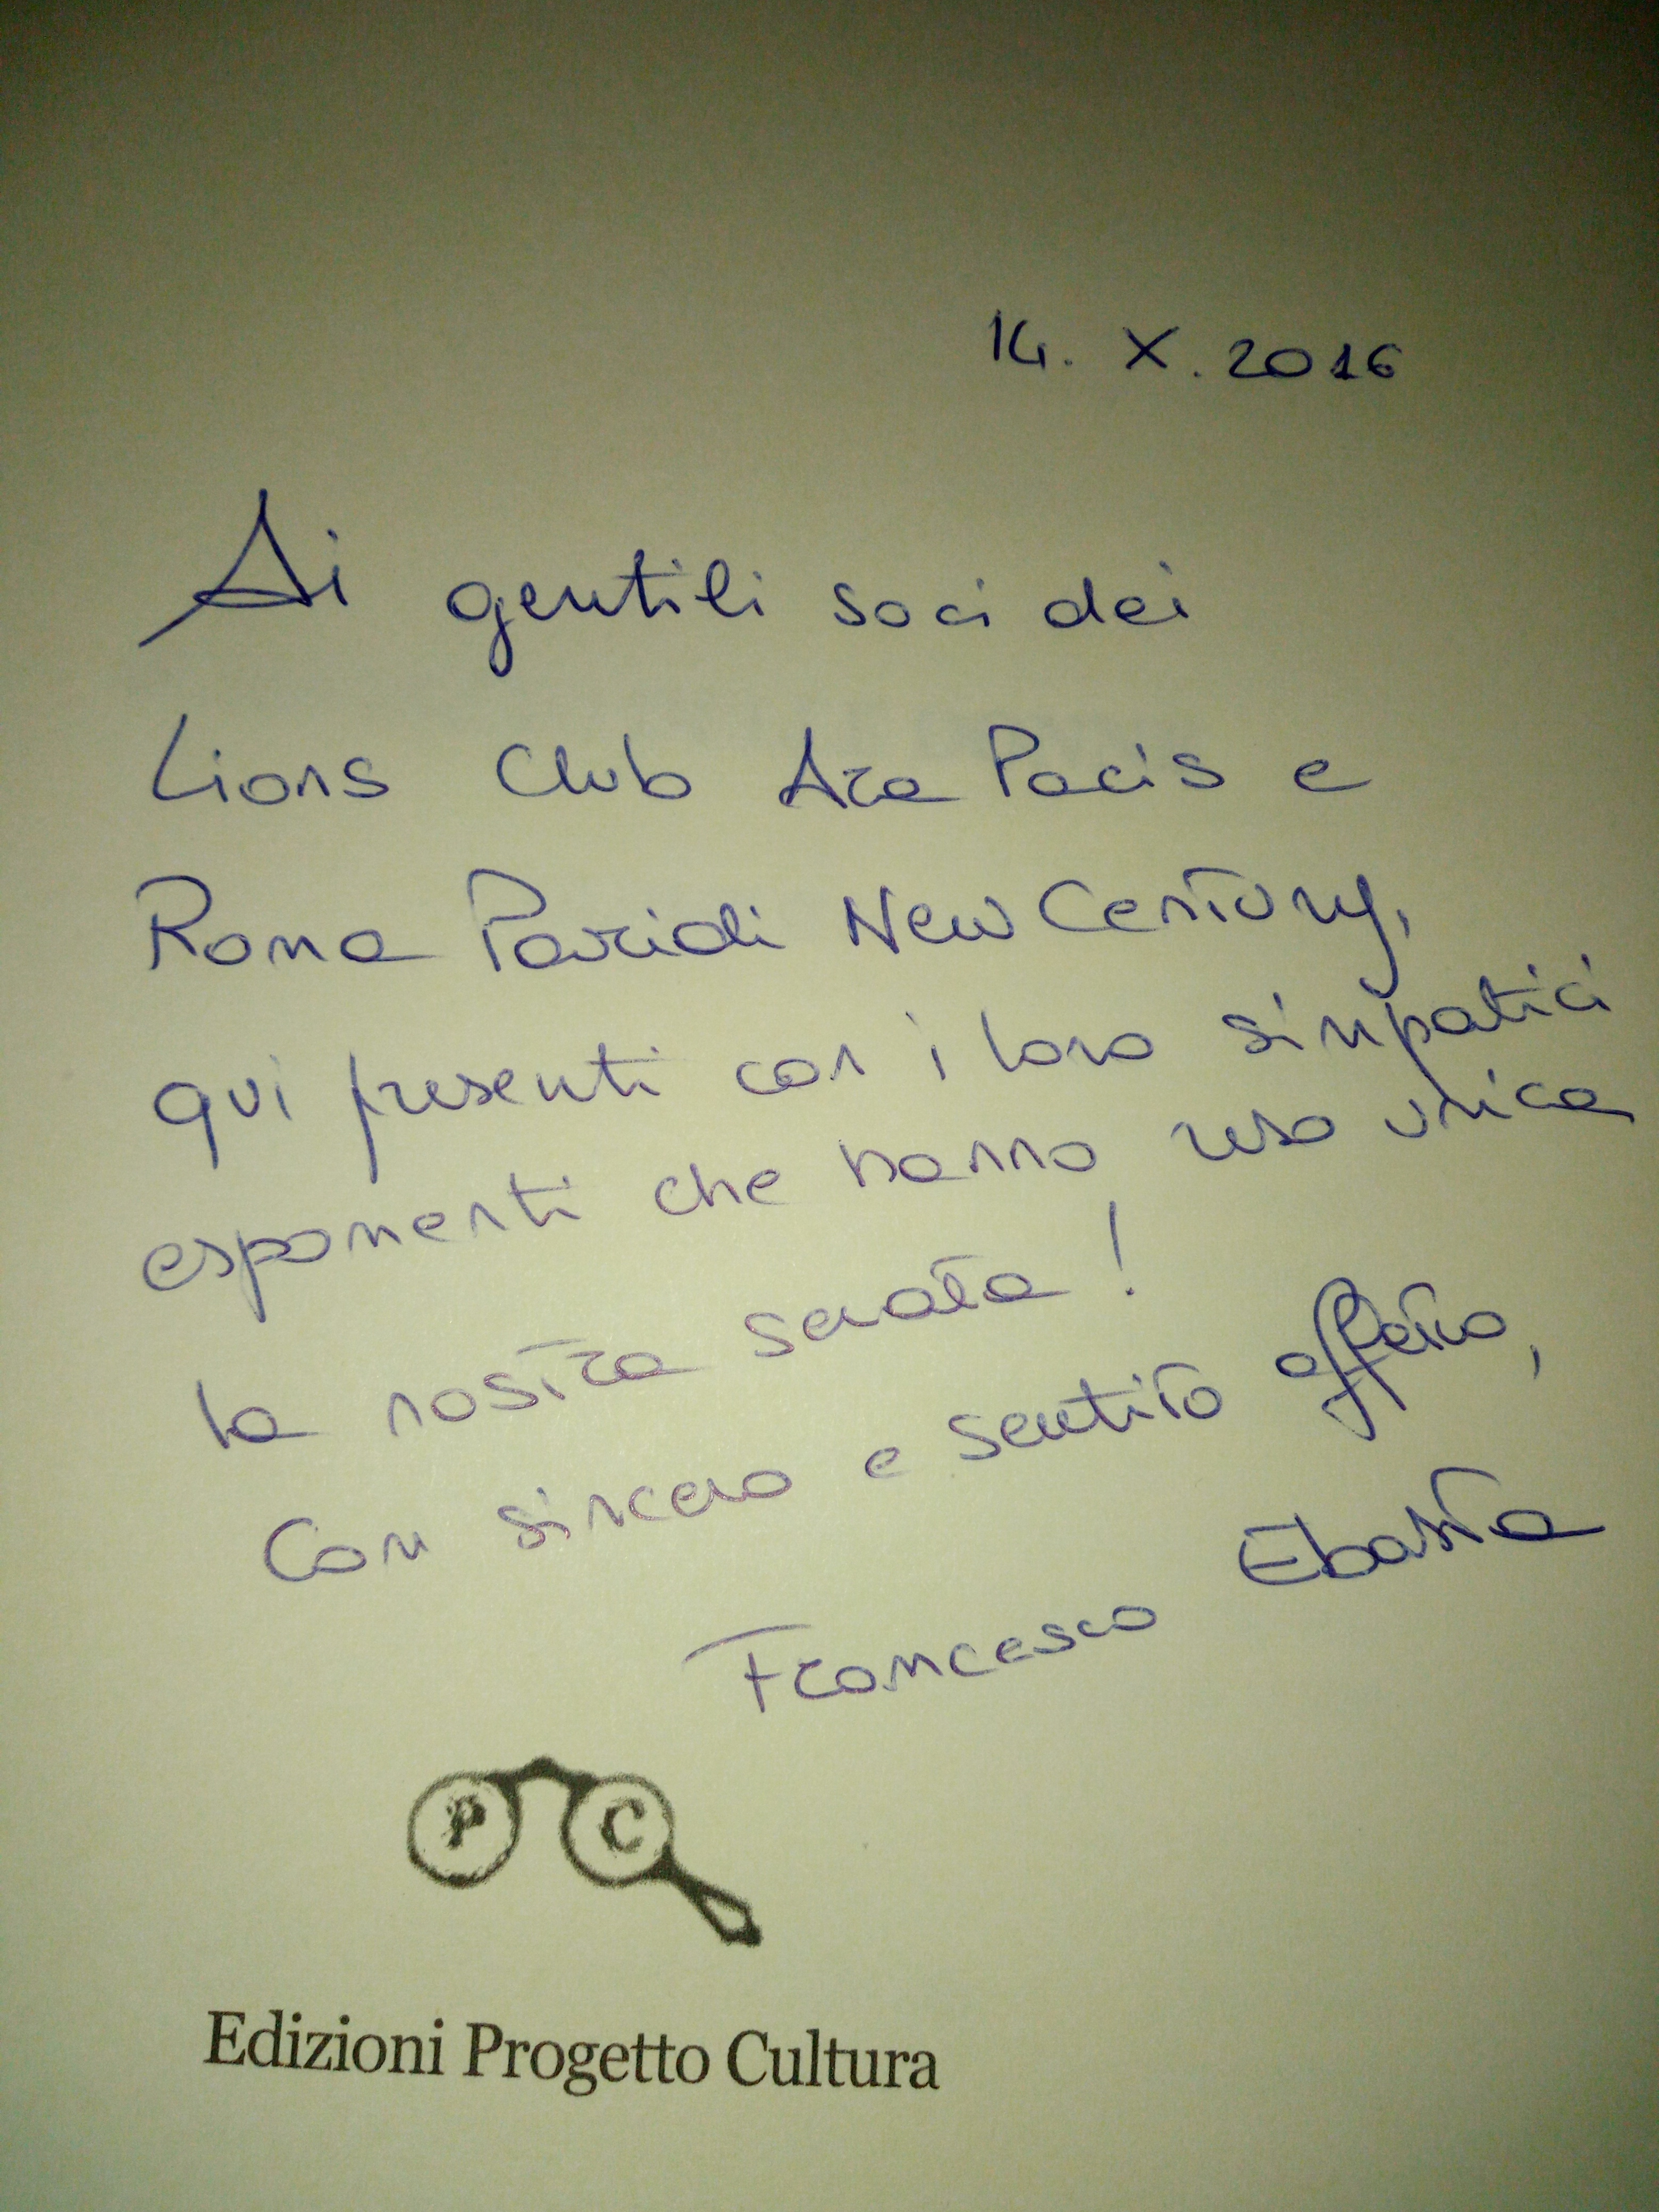 14. X. 2016
Ai gentili soci dei
Lions Club Ara Pacis e
Roma Parioli New Century,
qui presenti con i loro simpatici
esponenti che hanno reso unica
la nostra serata!
Con sincero e sentito affetto,
Francesco Ebasta
P C
Edizioni Progetto Cultura